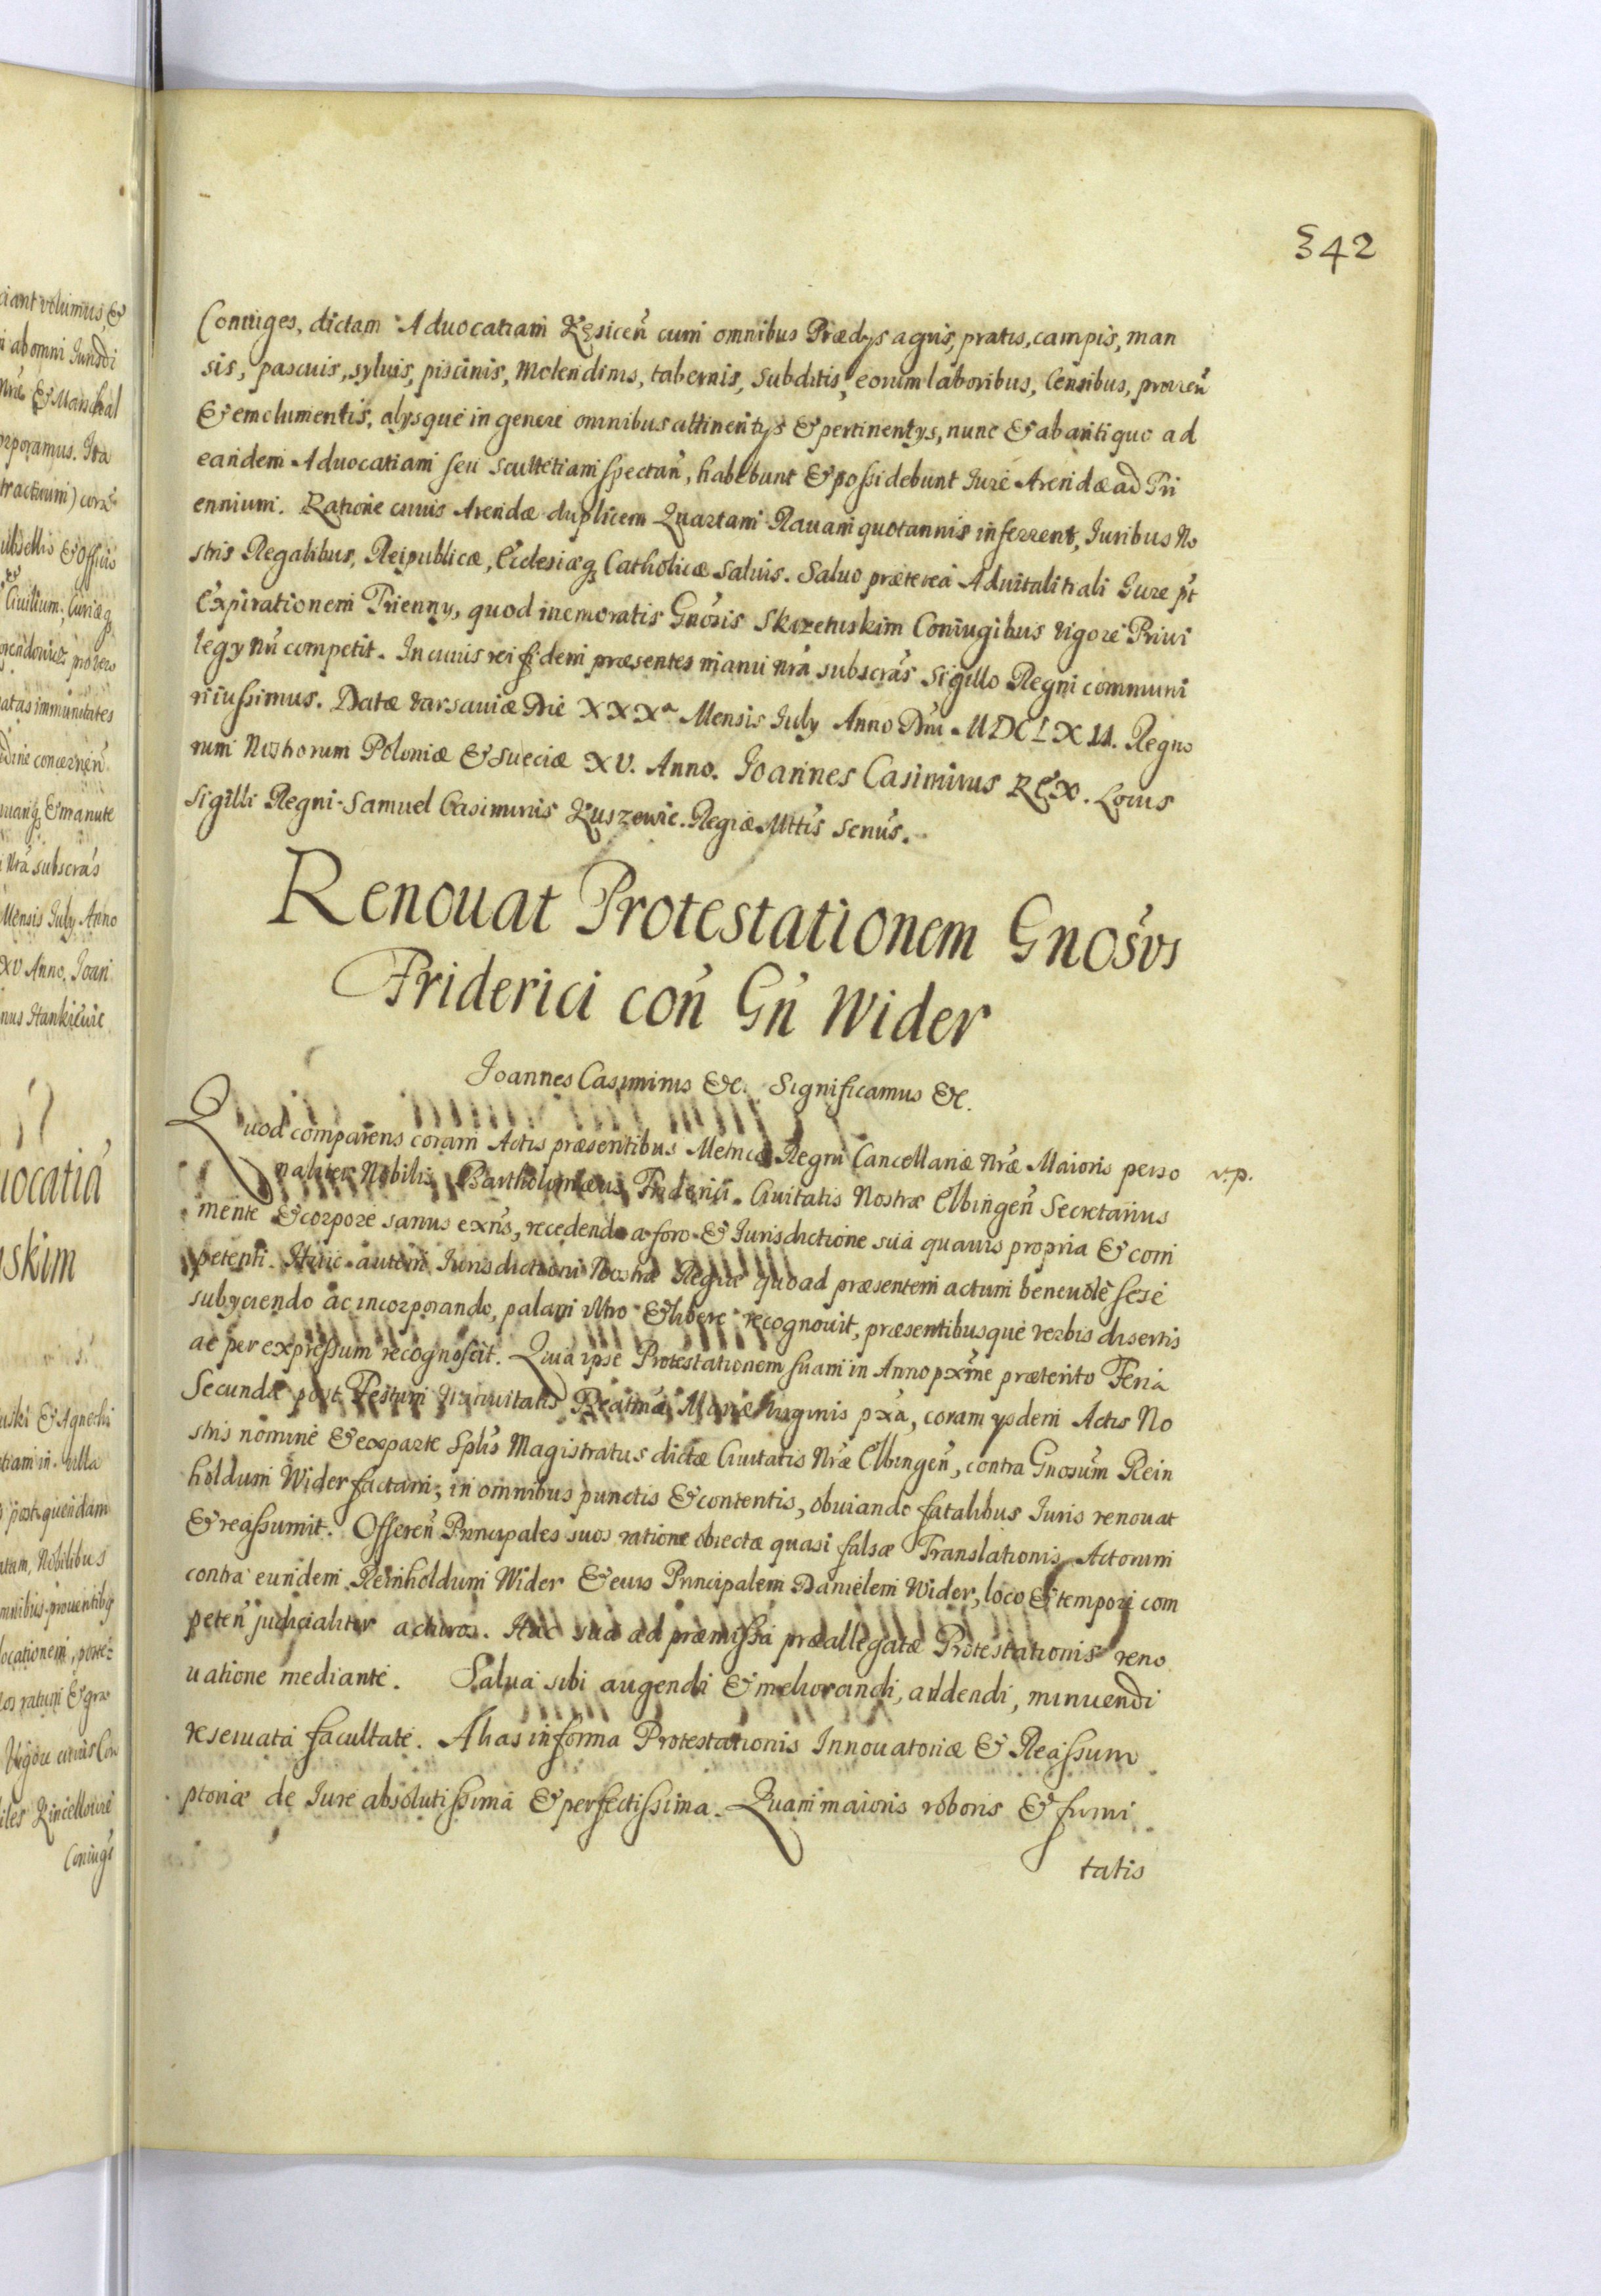 342
Coniuges, dictam Aduocatiam Kęsiceñ cum omnibus Prædys agris, pratis, campis, man
sis, pascuis, syluis, piscinis, Molendinis, tabernis, subditis, eorum laboribus, Censibus, prouen̄
& emolumentis, alysque in genere omnibus attinentys & pertinentys, nunc & ab antiquo ad
eandem Aduocatiam seu scultetiam spectañ, habebunt & possidebunt Iure Arendæ ad Tri
ennium. Ratione cuius Arendæ duplicem Quartam Rauam quotannis inferrent, Iuribus No
stris Regalibus, Reipublicæ, Ecclesiæq Catholicæ saluis. Saluo præterea Aduitalitiali Iure pt
Expirationem Trienny, quod memoratis Gnosis Skrzetuskim Coniugibus vigore Priui
legy nri competit. In cuius rei fidem præsentes manu nrâ subscras sigillo Regni communi
riiussimus. Datæ Varsauiæ Die XXXa Mensis July Anno Dni MDCLXII. Regno
rum Nostrorum Poloniæ & Sueciæ XV. Anno. Ioannes Casimirus REX. Locus
Sigilli Regni. Samuel Casimirus Kuszewic. Regiæ Mttis Scrius.
Renouat Protestationem Gnosus
Friderici coñ Gñ Wider
Joannes Casimirus &c. Significamus &c.
Quod comparens coram Actis præsentibus Metrices Regni Cancellariæ Nræ Maioris perso
v. p.
naliter Nobilis Bartholomæus Friderici Ciuitatis Nostræ Elbingeñ Secretarius
mente & corpore sanus exns, recedendo a foro & Iurisdictione suâ quauis propria & com
petenti. Huic autem Iurisdictioni Nostræ Regiæ quoad præsentem actum beneuole sese
subyciendo ac incorporando, palam vltro & libere recognouit, præsentibusque verbis disertis
ac per expressum recognoscit. Quia ipse Protestationem suam in Anno pxme præterito Feria
Secunda post Festum Natiuitatis Beatmæ Mariæ Virginis pxa, coram ysdem Actis No
stris nomine & ex parte Splis Magistratus dictæ Ciuitatis Nræ Elbingeñ, contra Gnosum Rein
holdum Wider factam, in omnibus punctis & contentis, obuiando fatalibus Iuris renouat
& reassumit. Offereñ Principales suos ratione obiectæ quasi falsæ Translationis Actorum
contra eundem Reinholdum Wider & eius Principalem Danielem Wider, loco & tempori com
peteñ judicialiter acturos. Hac sua ad præmissa præallegatæ Protestationis reno
uatione mediante. Salua sibi augendi & meliorandi, addendi, minuendi
reseruata facultate. Alias in forma Protestationis Innouatoriæ & Reassum
ptoriæ de Iure absolutissima & perfectissima. Quam maioris roboris & firmi
tatis